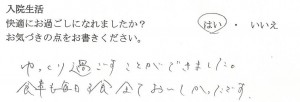 入院生活
快適にお過ごしになれましたか？ はい ・ いいえ
お気づきの点をお書きください。
ゆっくり過ごすことができました。
食事も毎日3食全ておいしかったです。